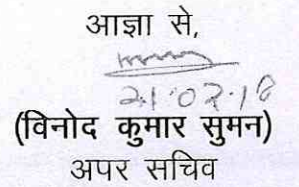 आज्ञा से,
21.02.18
(विनोद कुमार सुमन)
अपर सचिव